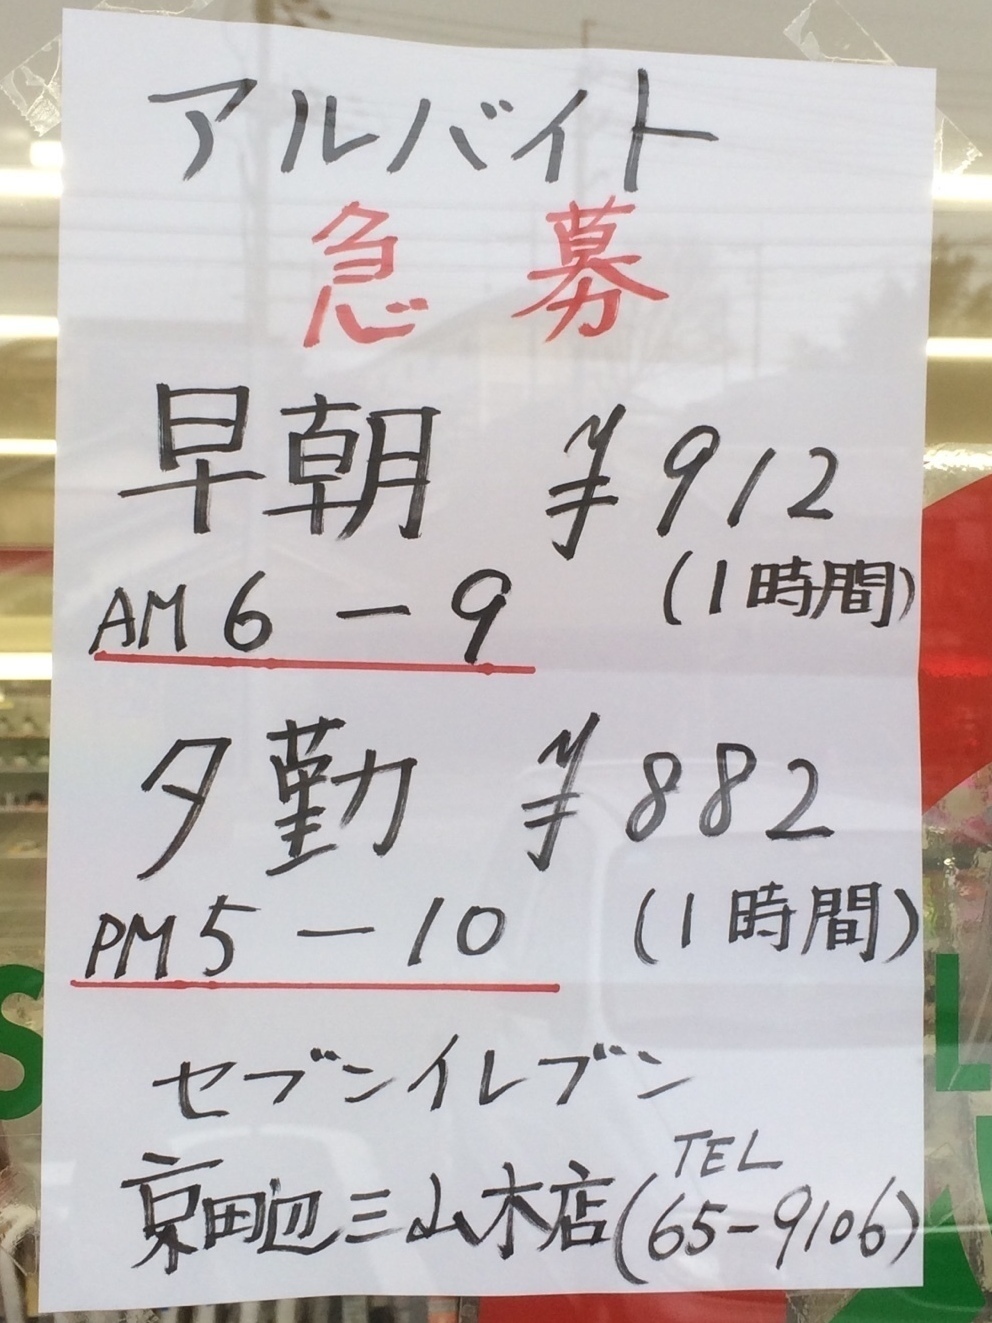 アルバイト
急募
早朝 ¥912
AM6-9 (1時間)
夕勤 ¥882
PM5-10 (1時間)
セブンイレブン
京田辺三山木店(TEL 65-9106)
S
L